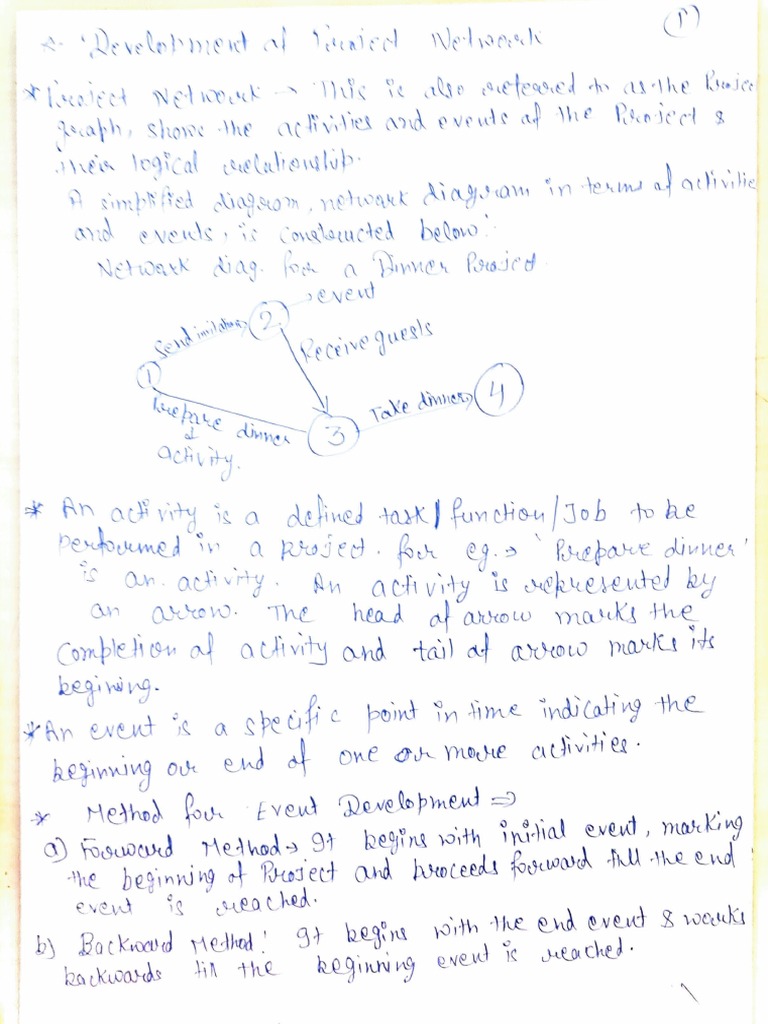 (1)
Development of Project Network
* Project Network → This is also refered to as the Project
graph, shows the activities and events of the Project &
their logical relationship.
A simplified diagram, network diagram in terms of activities
and events, is constructed below:
Network diag. for a Dinner Project
event
Send invitations
2
Receive guests
1
Prepare dinner
activity.
3
Take dinner
4
* An activity is a defined task/function/Job to be
performed in a project. for eg. → 'Prepare dinner'
is an activity. An activity is represented by
an arrow. The head of arrow marks the
completion of activity and tail of arrow marks its
begining.
* An event is a specific point in time indicating the
beginning or end of one or more activities.
* Method for Event Development ⇒
a) Forward Method → It begins with initial event, marking
the beginning of Project and proceeds forward till the end
event is reached.
b) Backward Method: It begins with the end event & works
backwards till the beginning event is reached.